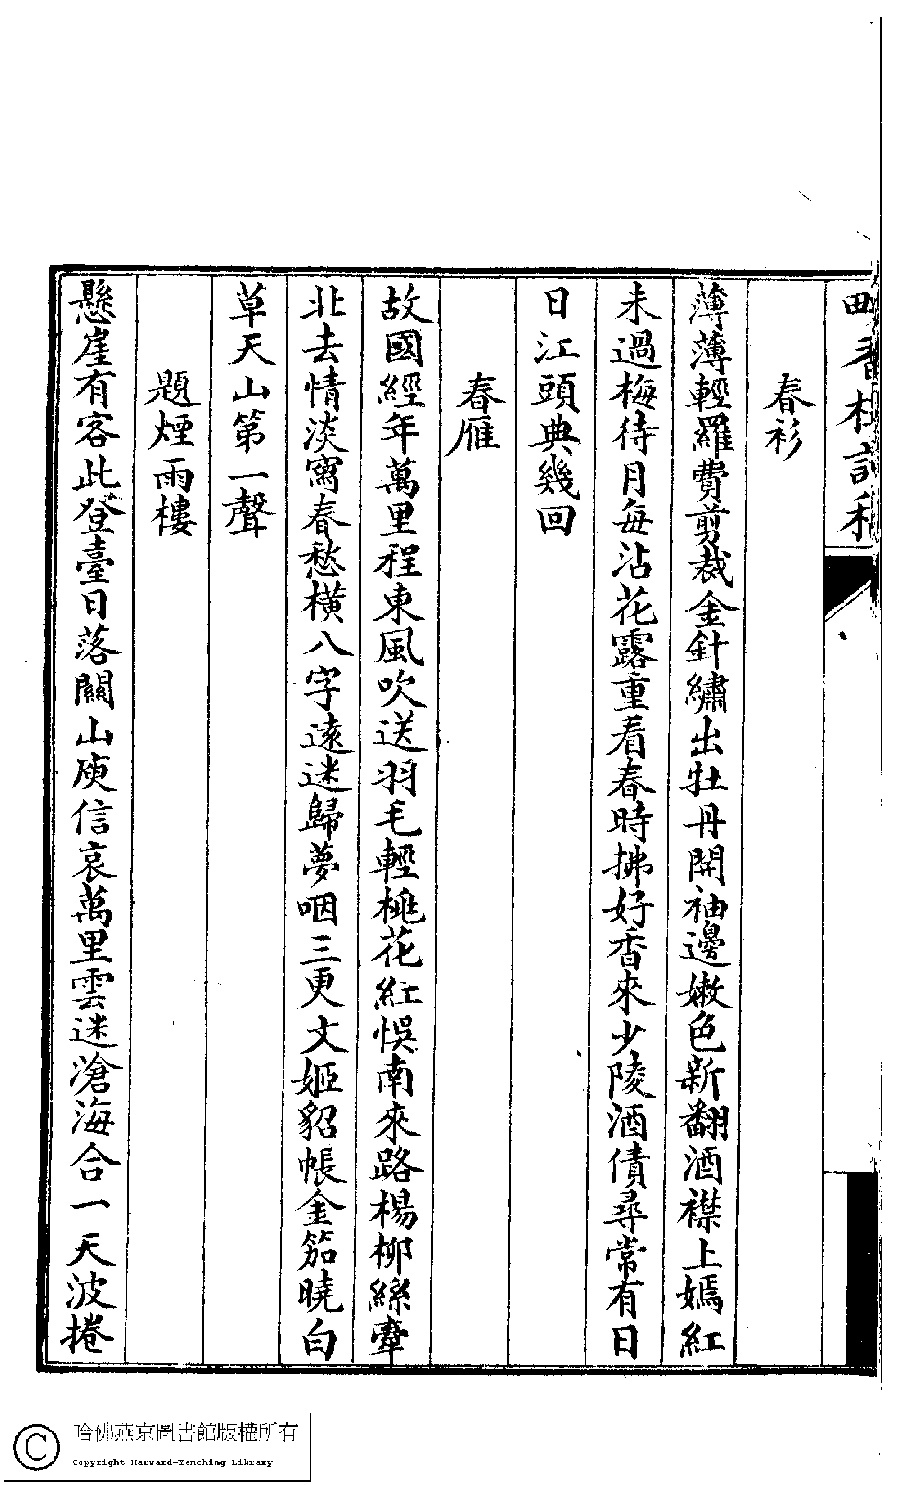 香村詩
春衫
薄薄輕羅費剪裁金針繡出牡丹開袖邊嫩色新翻酒襟上嫣紅
未過梅待月每沾花露重看春時拂好香來少陵酒債尋常有日
日江頭典幾回
春雁
故國經年萬里程東風吹送羽毛輕桃花紅悞南來路楊柳絲牽
北去情淡寫春愁橫八字遠迷歸夢咽三更文姬貂帳金笳曉白
草天山第一聲
題煙雨樓
懸崖有客此登臺日落關山庾信哀萬里雲迷滄海合一天波捲
哈佛燕京圖書館版權所有
Copyright Harvard-Yenching Library